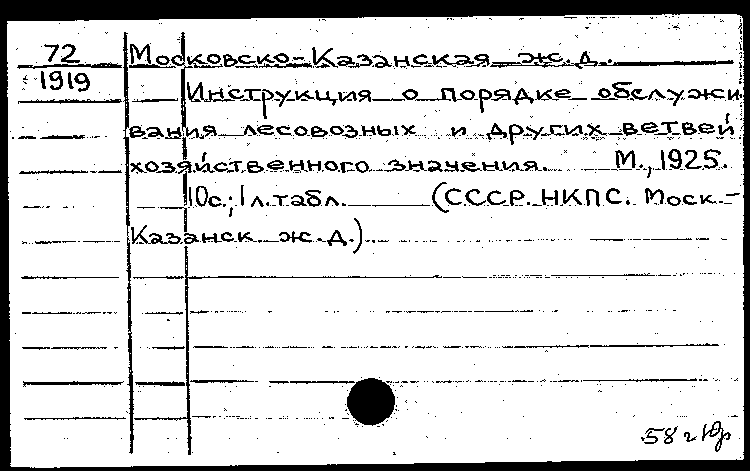 72
1919
Московско-Казанская ж.д.
Инструкция о порядке обслужи
вания лесовозных и других ветвей
хозяйственного значения. М., 1925.
10с.; 1л.табл. (СССР. НКПС. Моск.-
Казанск ж.д.)
58 г